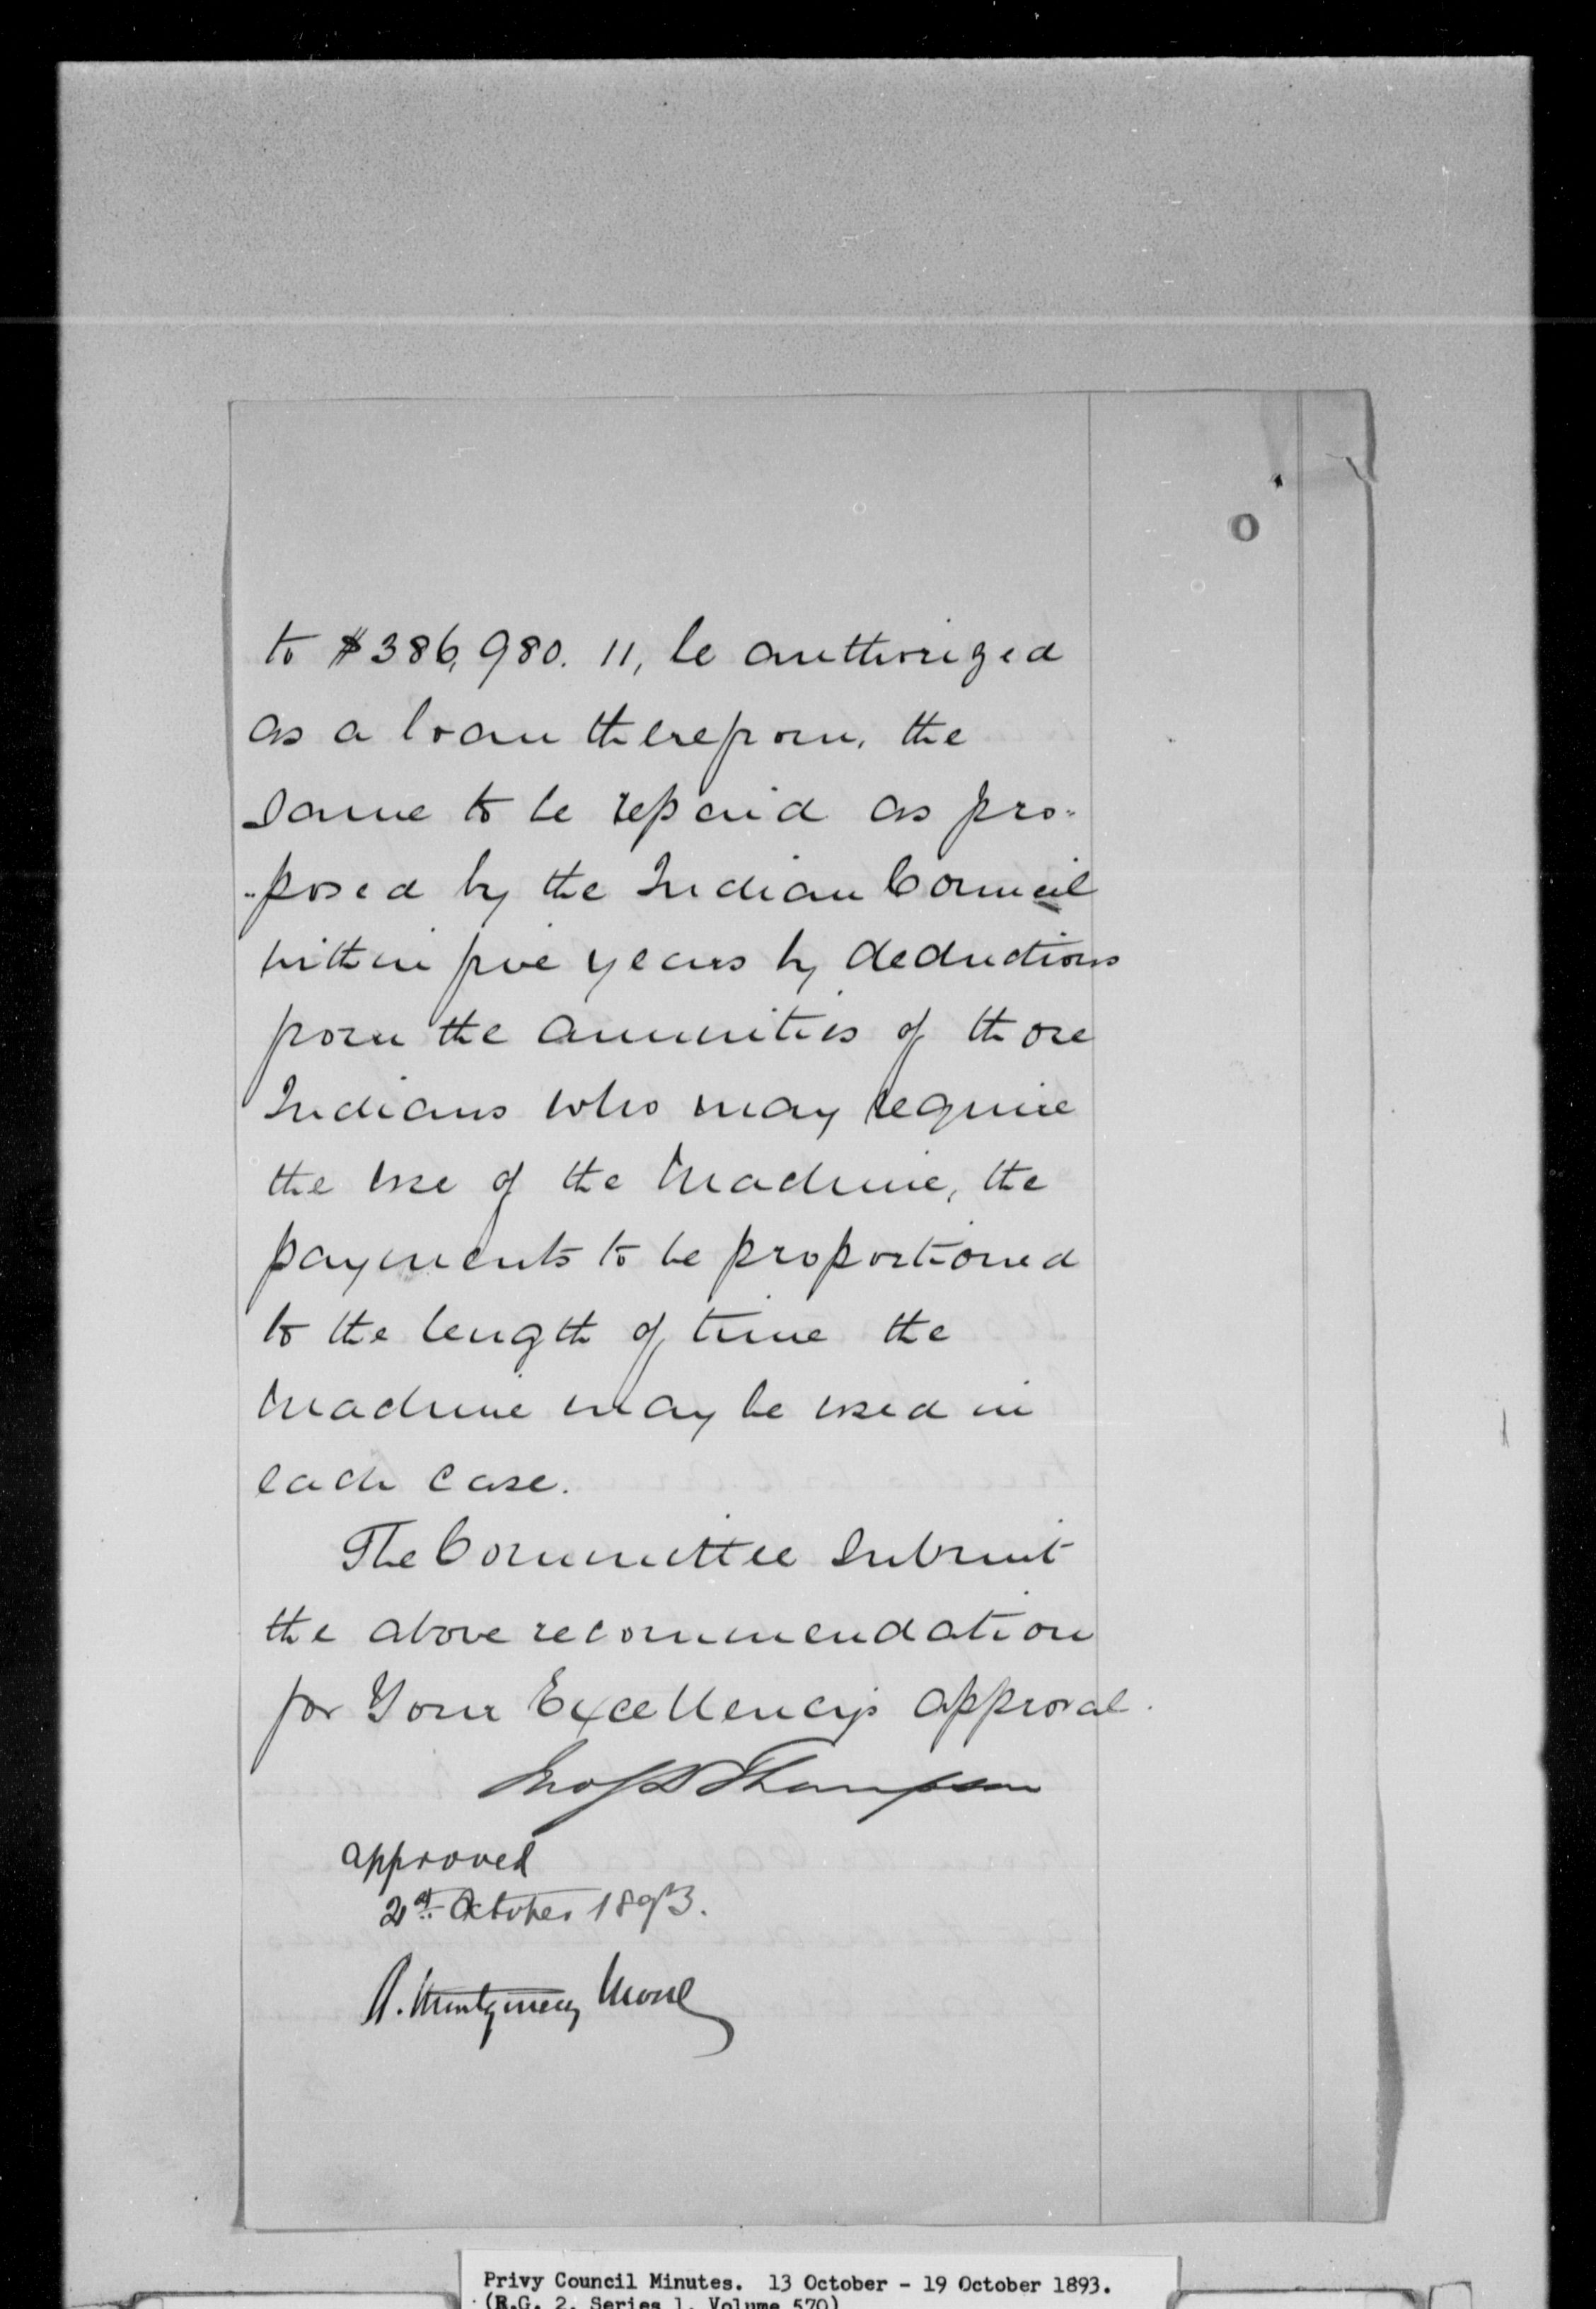 to $386,980.11, be authorized
as a loan therefrom, the
same to be repaid as pro-
-posed by the Indian Council
within five years by deductions
from the annuities of those
Indians who may require
the use of the Machine, the
payments to be proportioned
to the length of time the
Machine may be used in
each case.
The Committee submit
the above recommendation
for Your Excellency's approval.
Jno S D Thompson
approved
21st October 1893.
A. Montgomery Moore
Privy Council Minutes. 13 October - 19 October 1893.
(R.G. 2, Series 1, Volume 570)